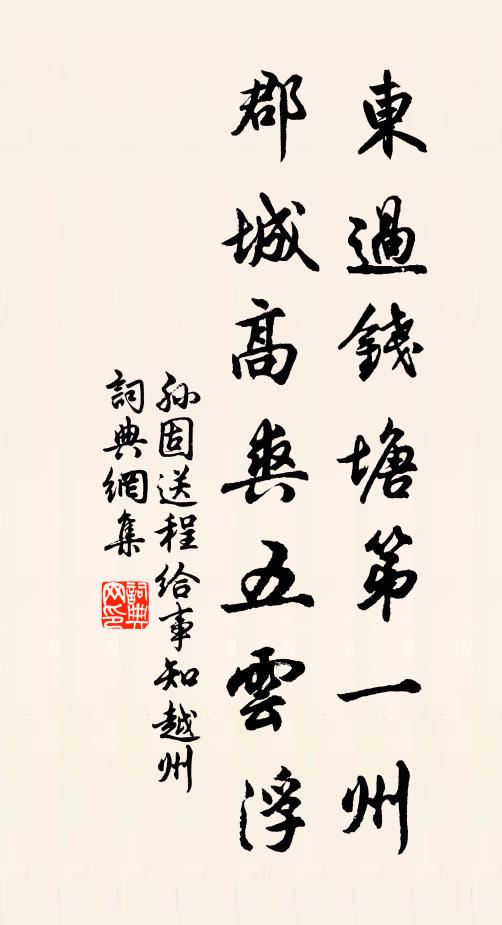 東過錢塘第一州
郡城高爽五雲浮
孫固送程給事知越州
詞典網集
詞典
网印